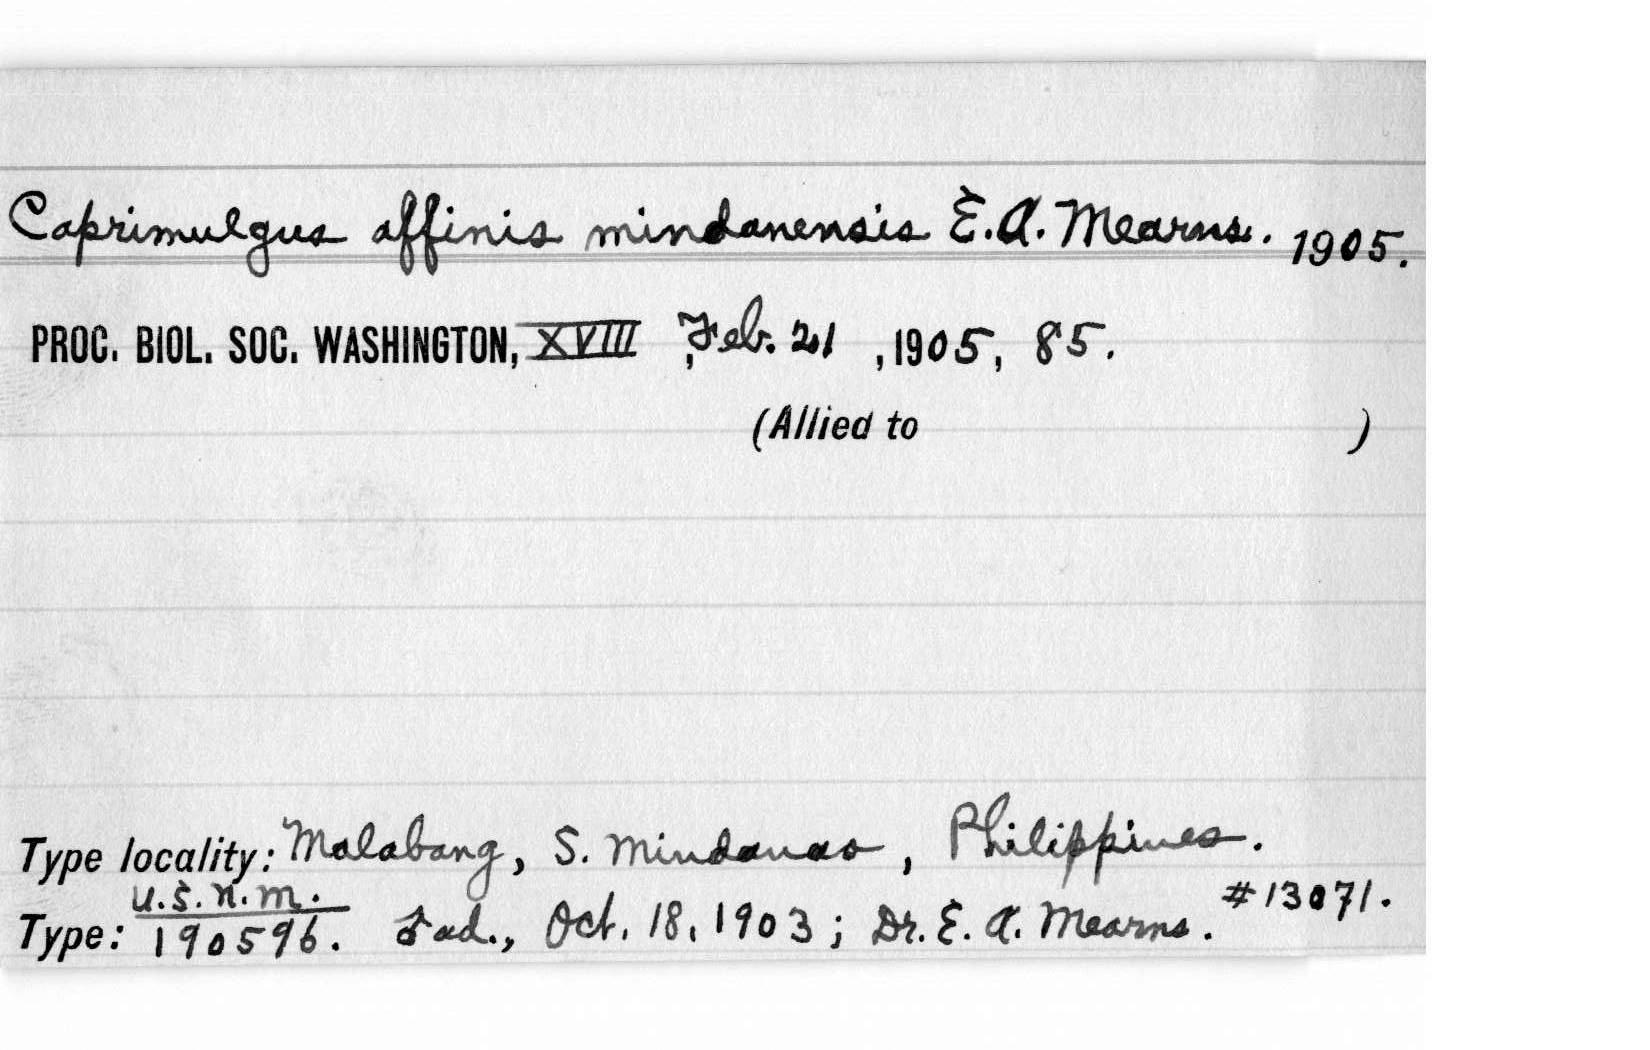 Caprimulgus affinis mindanensis E.A. Mearns. 1905.
PROC. BIOL. SOC. WASHINGTON, XVIII, Feb. 21, 1905, 85.
(Allied to )
Type locality: Malabang, S. Mindanao, Philippines.
U.S.N.M. #13071.
Type: 190596. ad., Oct. 18, 1903; Dr. E. A. Mearns.